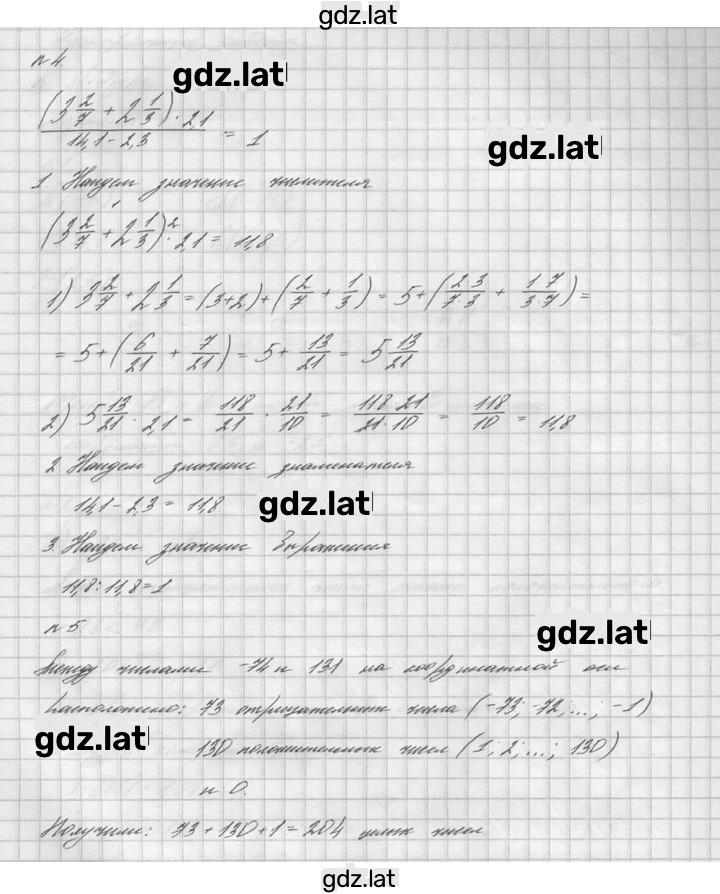 gdz.lat
n 4.
gdz.lat
(3 2/7 + 2 1/3) · 2,1 / 14,1 - 2,3 = 1
gdz.lat
1. Найдем значение числителя
(3 2/7 +¹ 2 1/3) ·² 2,1 = 11,8
1) 3 2/7 + 2 1/3 = (3+2) + (2/7 + 1/3) = 5 + (2·3/7·3 + 1·7/3·7) =
= 5 + (6/21 + 7/21) = 5 + 13/21 = 5 13/21
2) 5 13/21 · 2,1 = 118/21 · 21/10 = 118·21/21·10 = 118/10 = 11,8
2 Найдем значение знаменателя
14,1 - 2,3 = 11,8
gdz.lat
3. Найдем значение выражения
11,8 : 11,8 = 1
n 5.
gdz.lat
Между числами -74 и 131 на координатной оси
расположено: 73 отрицательных числа (-73; -72; ...; -1)
gdz.lat
130 положительных чисел (1; 2; ...; 130)
и 0.
Получили: 73 + 130 + 1 = 204 целых чисел
gdz.lat